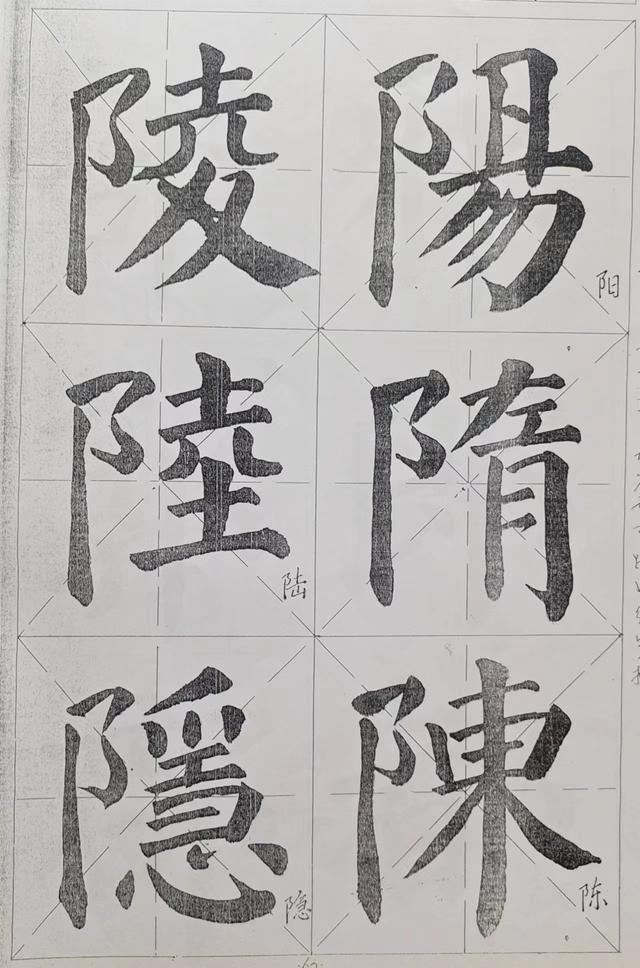 陽阳
隋
陳陈
陵
陸陆
隱隐